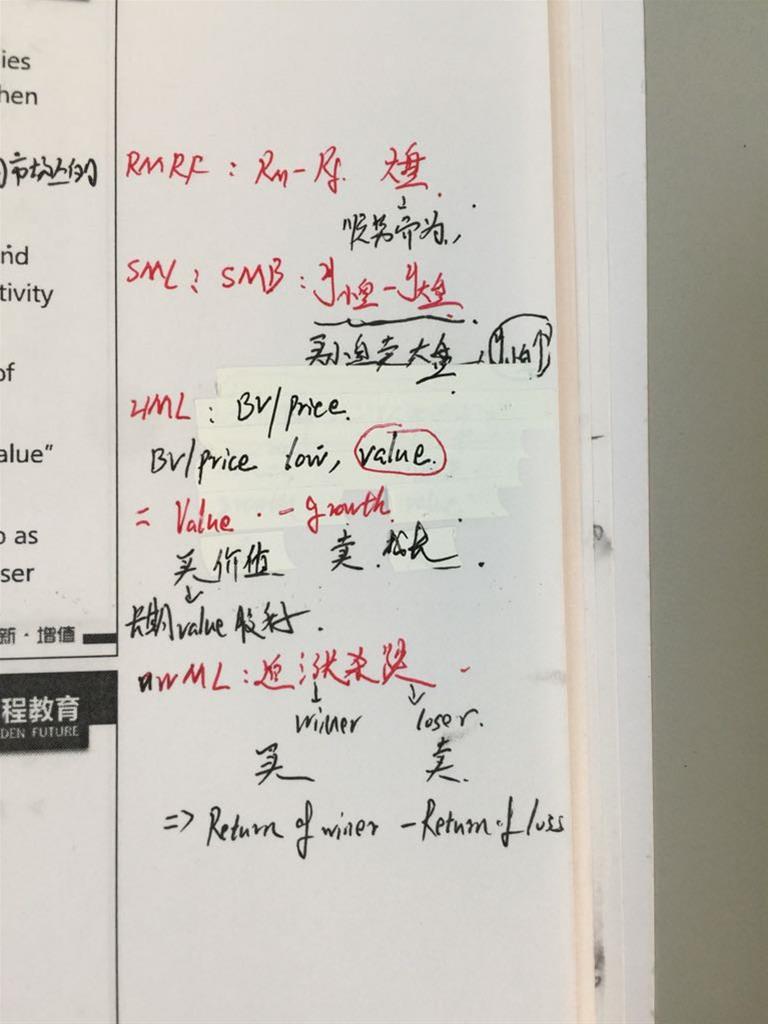 ies
hen
市场
nd
tivity
of
alue”
o as
ser
新·增值
程教育
DEN FUTURE
RMRF : Rm-Rf. 大盘
↓
顺势而为,
SML : SMB : 小盘 - 大盘
买小盘卖大盘,
HML : BV/price.
BV/price low, value.
= Value - growth
买价值 卖.成长.
↓
长期value 胜利.
WML : 追涨杀跌
↓ ↓
winer loser.
买 卖.
=> Return of winer - Return of loss